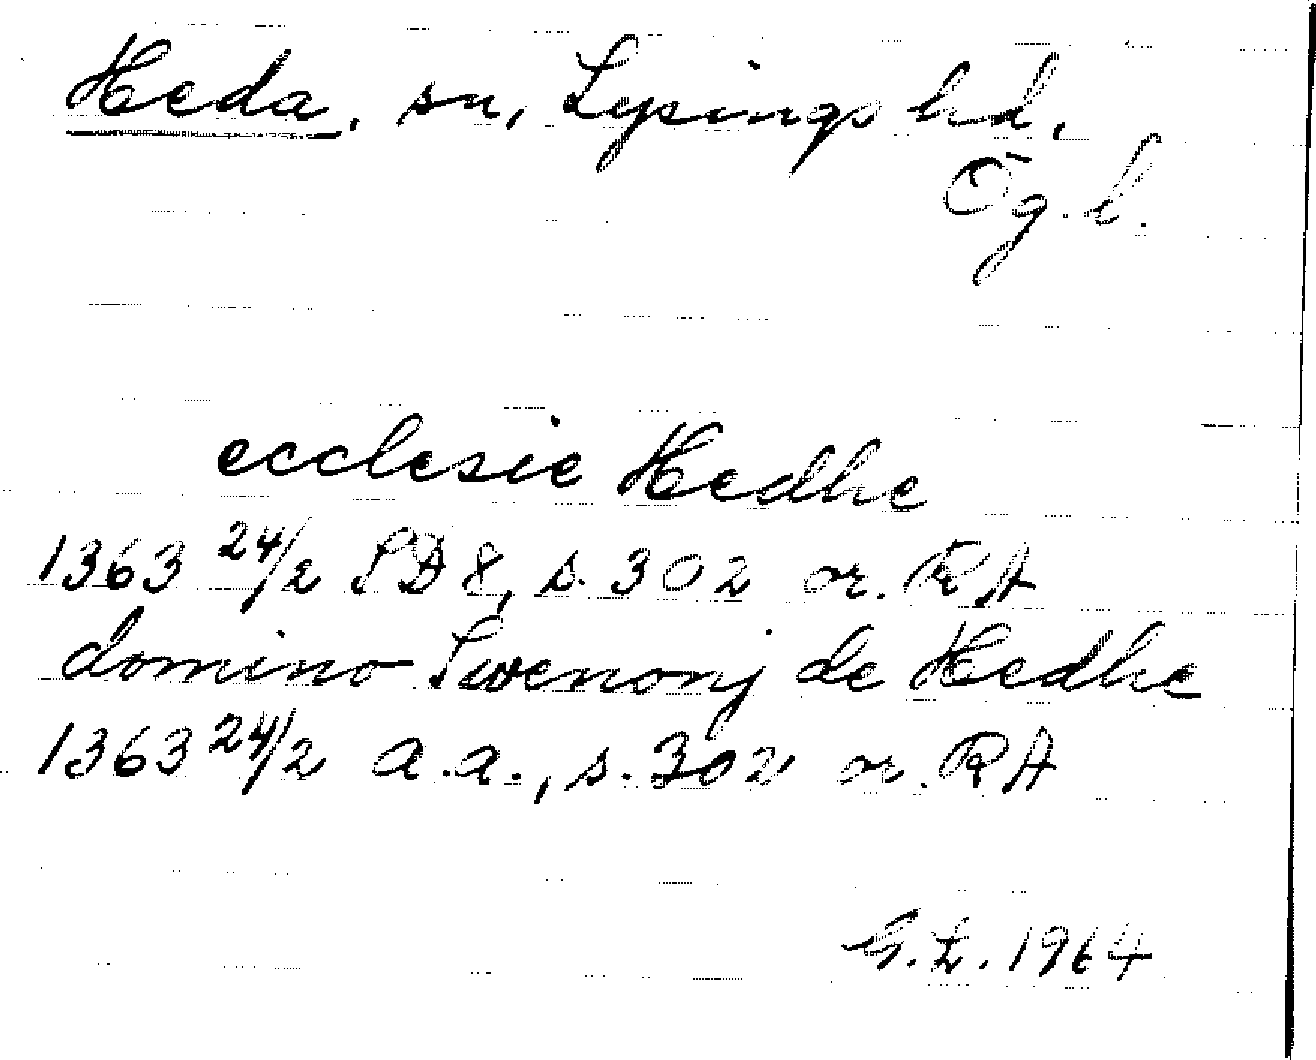 Heda, sn, Lysings hd,
Ög. l.
ecclesie Hedhe
1363 24/2 SD 8, s. 302 or. RA
domino Swenonj de Hedhe
1363 24/2 a.a., s. 302 or. RA
G.L. 1964